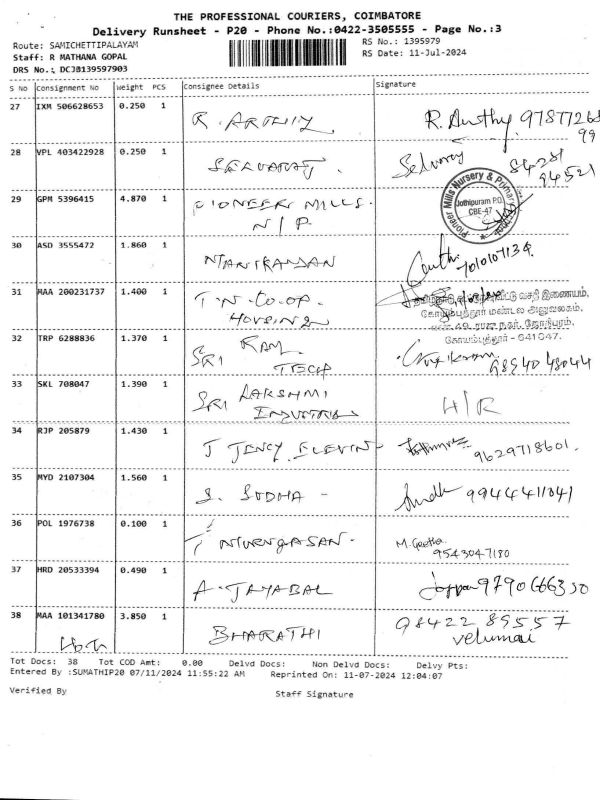 THE PROFESSIONAL COURIERS, COIMBATORE
Delivery Runsheet - P20 - Phone No.:0422-3505555 - Page No.:3
Route: SAMICHETTIPALAYAM
RS No.: 1395979
Staff: R MATHANA GOPAL
RS Date: 11-Jul-2024
DRS No.: DCJB139597903
S No Consignment No Weight PCS Consignee Details Signature
27 IXM 506628653 0.250 1 R. ARTHIY
28 VPL 403422928 0.250 1 SELVARAJ. Selvaraj 84281
94521
29 GPM 5396415 4.870 1 PIONEER MILLS. N/P.
Pioneer Mills Nursery & Primary
Jothipuram P.O.
CBE-47
30 ASD 3555472 1.860 1
31 MAA 200231737 1.400 1 T.N. CO-OP. HOUSING
கோயம்புத்தூர் மண்டல அலுவலகம்,
கோயம்புத்தூர் - 641047.
32 TRP 6288836 1.370 1 SRI RAM TECH
98940 48044
33 SKL 708047 1.390 1 SRI LAKSHMI INDUSTRIES H/R
34 RJP 205879 1.430 1 J JENCY 9629718601.
35 MYD 2107304 1.560 1 S. SUDHA - Sudha 9944411041
36 POL 1976738 0.100 1 T MURUGASAN. M. Geetha
9543047180
37 HRD 20533394 0.490 1 A. JAYABAL
38 MAA 101341780 3.850 1 BHARATHI 98422 89557
velumani
Tot Docs: 38 Tot COD Amt: 0.00 Delvd Docs: Non Delvd Docs: Delvy Pts:
Entered By :SUMATHIP20 07/11/2024 11:55:22 AM Reprinted On: 11-07-2024 12:04:07
Verified By Staff Signature